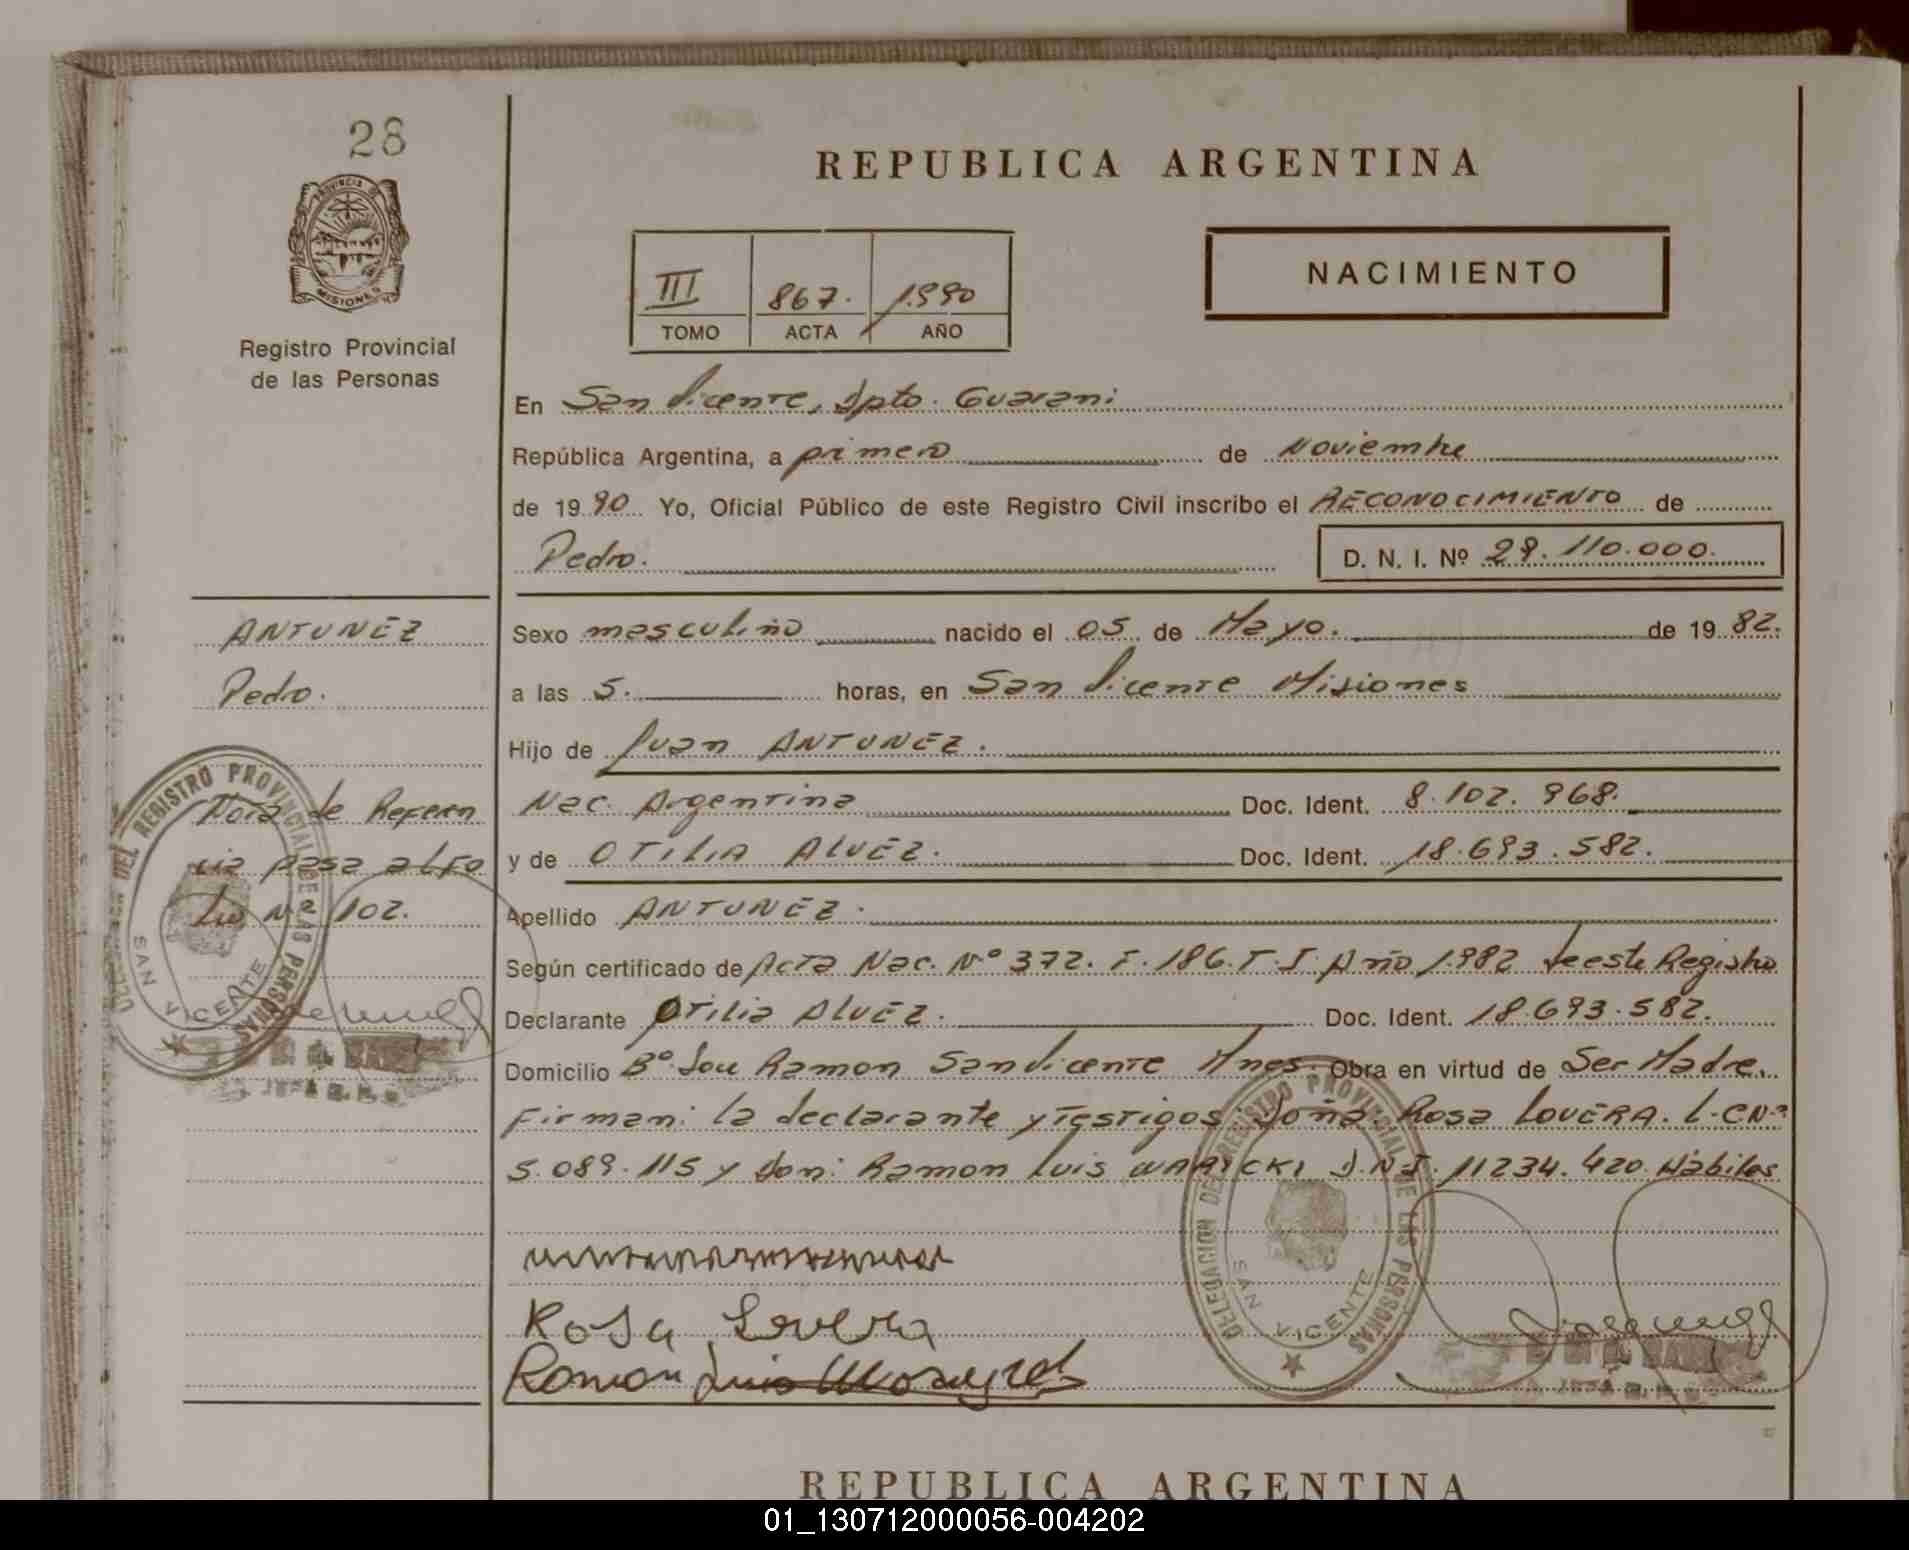 28
PROVINCIA DE
MISIONES
Registro Provincial
de las Personas
REPUBLICA ARGENTINA
III 867. 1990
TOMO ACTA AÑO
NACIMIENTO
En San Vicente, Dpto. Guarani
República Argentina, a primero de Noviembre
de 1990 Yo, Oficial Público de este Registro Civil inscribo el RECONOCIMIENTO de
Pedro. D. N. I. Nº 29.110.000.
ANTUNEZ
Pedro.
Sexo masculino nacido el 05 de Mayo. de 1982.
a las 5. horas, en San Vicente Misiones
Hijo de Juan ANTUNEZ.
Nac. Argentina Doc. Ident. 8.102.968.
y de OTILIA ALVEZ. Doc. Ident. 18.693.582.
Apellido ANTUNEZ.
Según certificado de Acta Nac. Nº 372. F. 186. T. I. Año 1982 de este Registro
Declarante Otilia ALVEZ. Doc. Ident. 18.693.582.
Domicilio Bº. San Ramon San Vicente Mnes. Obra en virtud de Ser Madre.
Firman: la declarante y Testigos: Doña Rosa LOVERA. L.C Nº
5.089.115 y Don: Ramon Luis D.N.I. 11234.420. Hábiles
Nota de Referen
cia pasa al Fo
lio Nº 102.
DELEGACION DEL REGISTRO PROVINCIAL DE LAS PERSONAS
SAN VICENTE
DELEGACION DEL REGISTRO PROVINCIAL DE LAS PERSONAS
SAN VICENTE
Rosa Lovera
Ramon Luis
REPUBLICA ARGENTINA
01_130712000056-004202